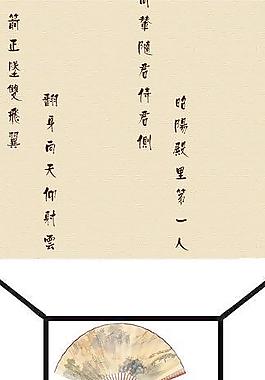 昭陽殿里第一人
同輦隨君侍君側
翻身向天仰射雲
箭正墜雙飛翼